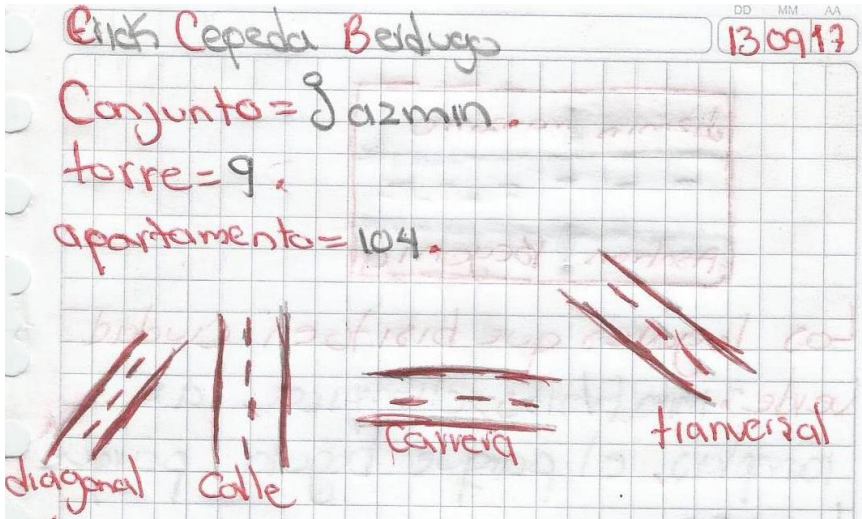 DD MM AA
Erick Cepeda Berdugo 13 09 17
Conjunto = Jazmin.
torre = 9.
apartamento = 104.
diagonal Calle Carrera tranversal